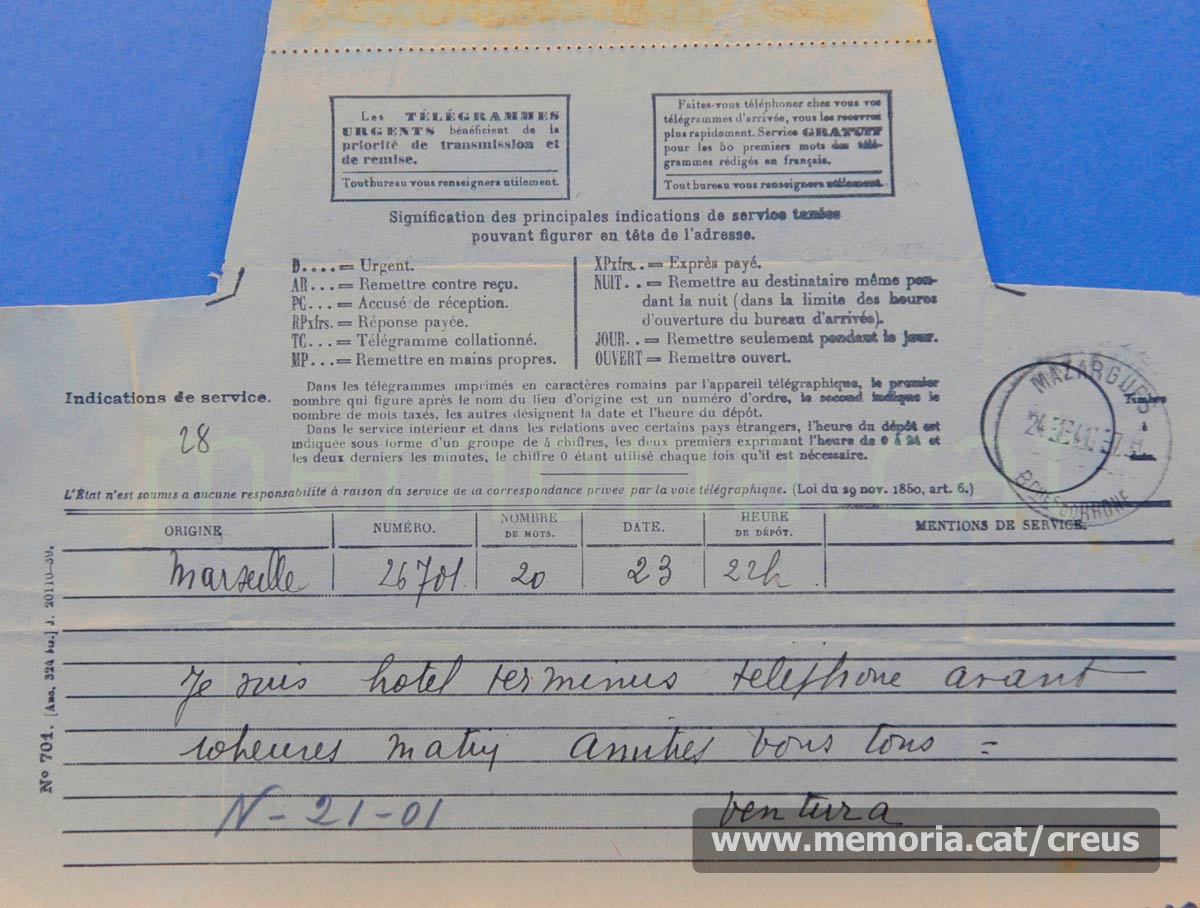 Les TÉLÉGRAMMES
URGENTS bénéficient de la
priorité de transmission et
de remise.
Tout bureau vous renseignera utilement.
Faites-vous téléphoner chez vous vos
télégrammes d'arrivée, vous les recevrez
plus rapidement. Service GRATUIT
pour les 50 premiers mots des télé-
grammes rédigés en français.
Tout bureau vous renseignera utilement.
Signification des principales indications de service taxées
pouvant figurer en tête de l'adresse.
D.... = Urgent.
AR... = Remettre contre reçu.
PC... = Accusé de réception.
RPxfrs. = Réponse payée.
TC... = Télégramme collationné.
MP... = Remettre en mains propres.
XPxfrs.. = Exprès payé.
NUIT.. = Remettre au destinataire même pen-
dant la nuit (dans la limite des heures
d'ouverture du bureau d'arrivée).
JOUR.. = Remettre seulement pendant le jour.
OUVERT = Remettre ouvert.
Indications de service.
28
Dans les télégrammes imprimés en caractères romains par l'appareil télégraphique, le premier
nombre qui figure après le nom du lieu d'origine est un numéro d'ordre, le second indique le
nombre de mots taxés, les autres désignent la date et l'heure du dépôt.
Dans le service intérieur et dans les relations avec certains pays étrangers, l'heure du dépôt est
indiquée sous forme d'un groupe de 4 chiffres, les deux premiers exprimant l'heure de 0 à 24 et
les deux derniers les minutes, le chiffre 0 étant utilisé chaque fois qu'il est nécessaire.
Timbre
à
date.
MAZARGUES
BCHES DU RHONE
memoria.cat
L'État n'est soumis a aucune responsabilité à raison du service de la correspondance privée par la voie télégraphique. (Loi du 29 nov. 1850, art. 6.)
ORIGINE NUMÉRO. NOMBRE DE MOTS. DATE. HEURE DE DÉPÔT. MENTIONS DE SERVICE.
Marseille 26701 20 23 22h
Je suis hotel terminus telephone avant
10heures matin amities vous tous =
N-21-01 ventura
N° 701. [Anc. 324 bis.] J. 20110-39.
www.memoria.cat/creus